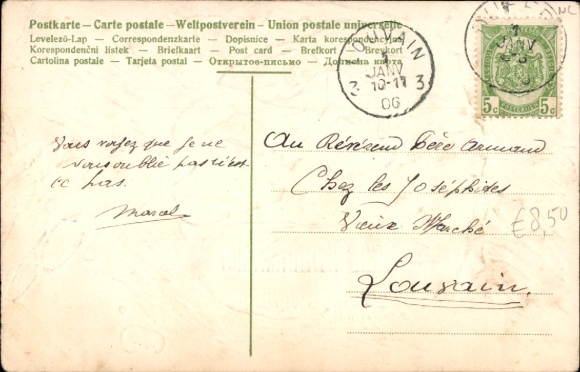 Postkarte - Carte postale - Weltpostverein - Union postale universelle
Levelező-Lap - Correspondenzkarte - Dopisnice - Karta korespondencyjna
Korespondenční lístek - Briefkaart - Post card - Brefkort - Brevkort
Cartolina postale - Tarjeta postal - Открытое-письмо - Дописна карта
LOUVAIN
1
JANV
10-11
3 3
06
1
JANV
5c 5c
Vous voyez que je ne
vous oublie pas n'est
ce pas.
Marcel
Au Révérend Père Armand
Chez les Joséphites
Vieux Marché
Louvain
€8,50